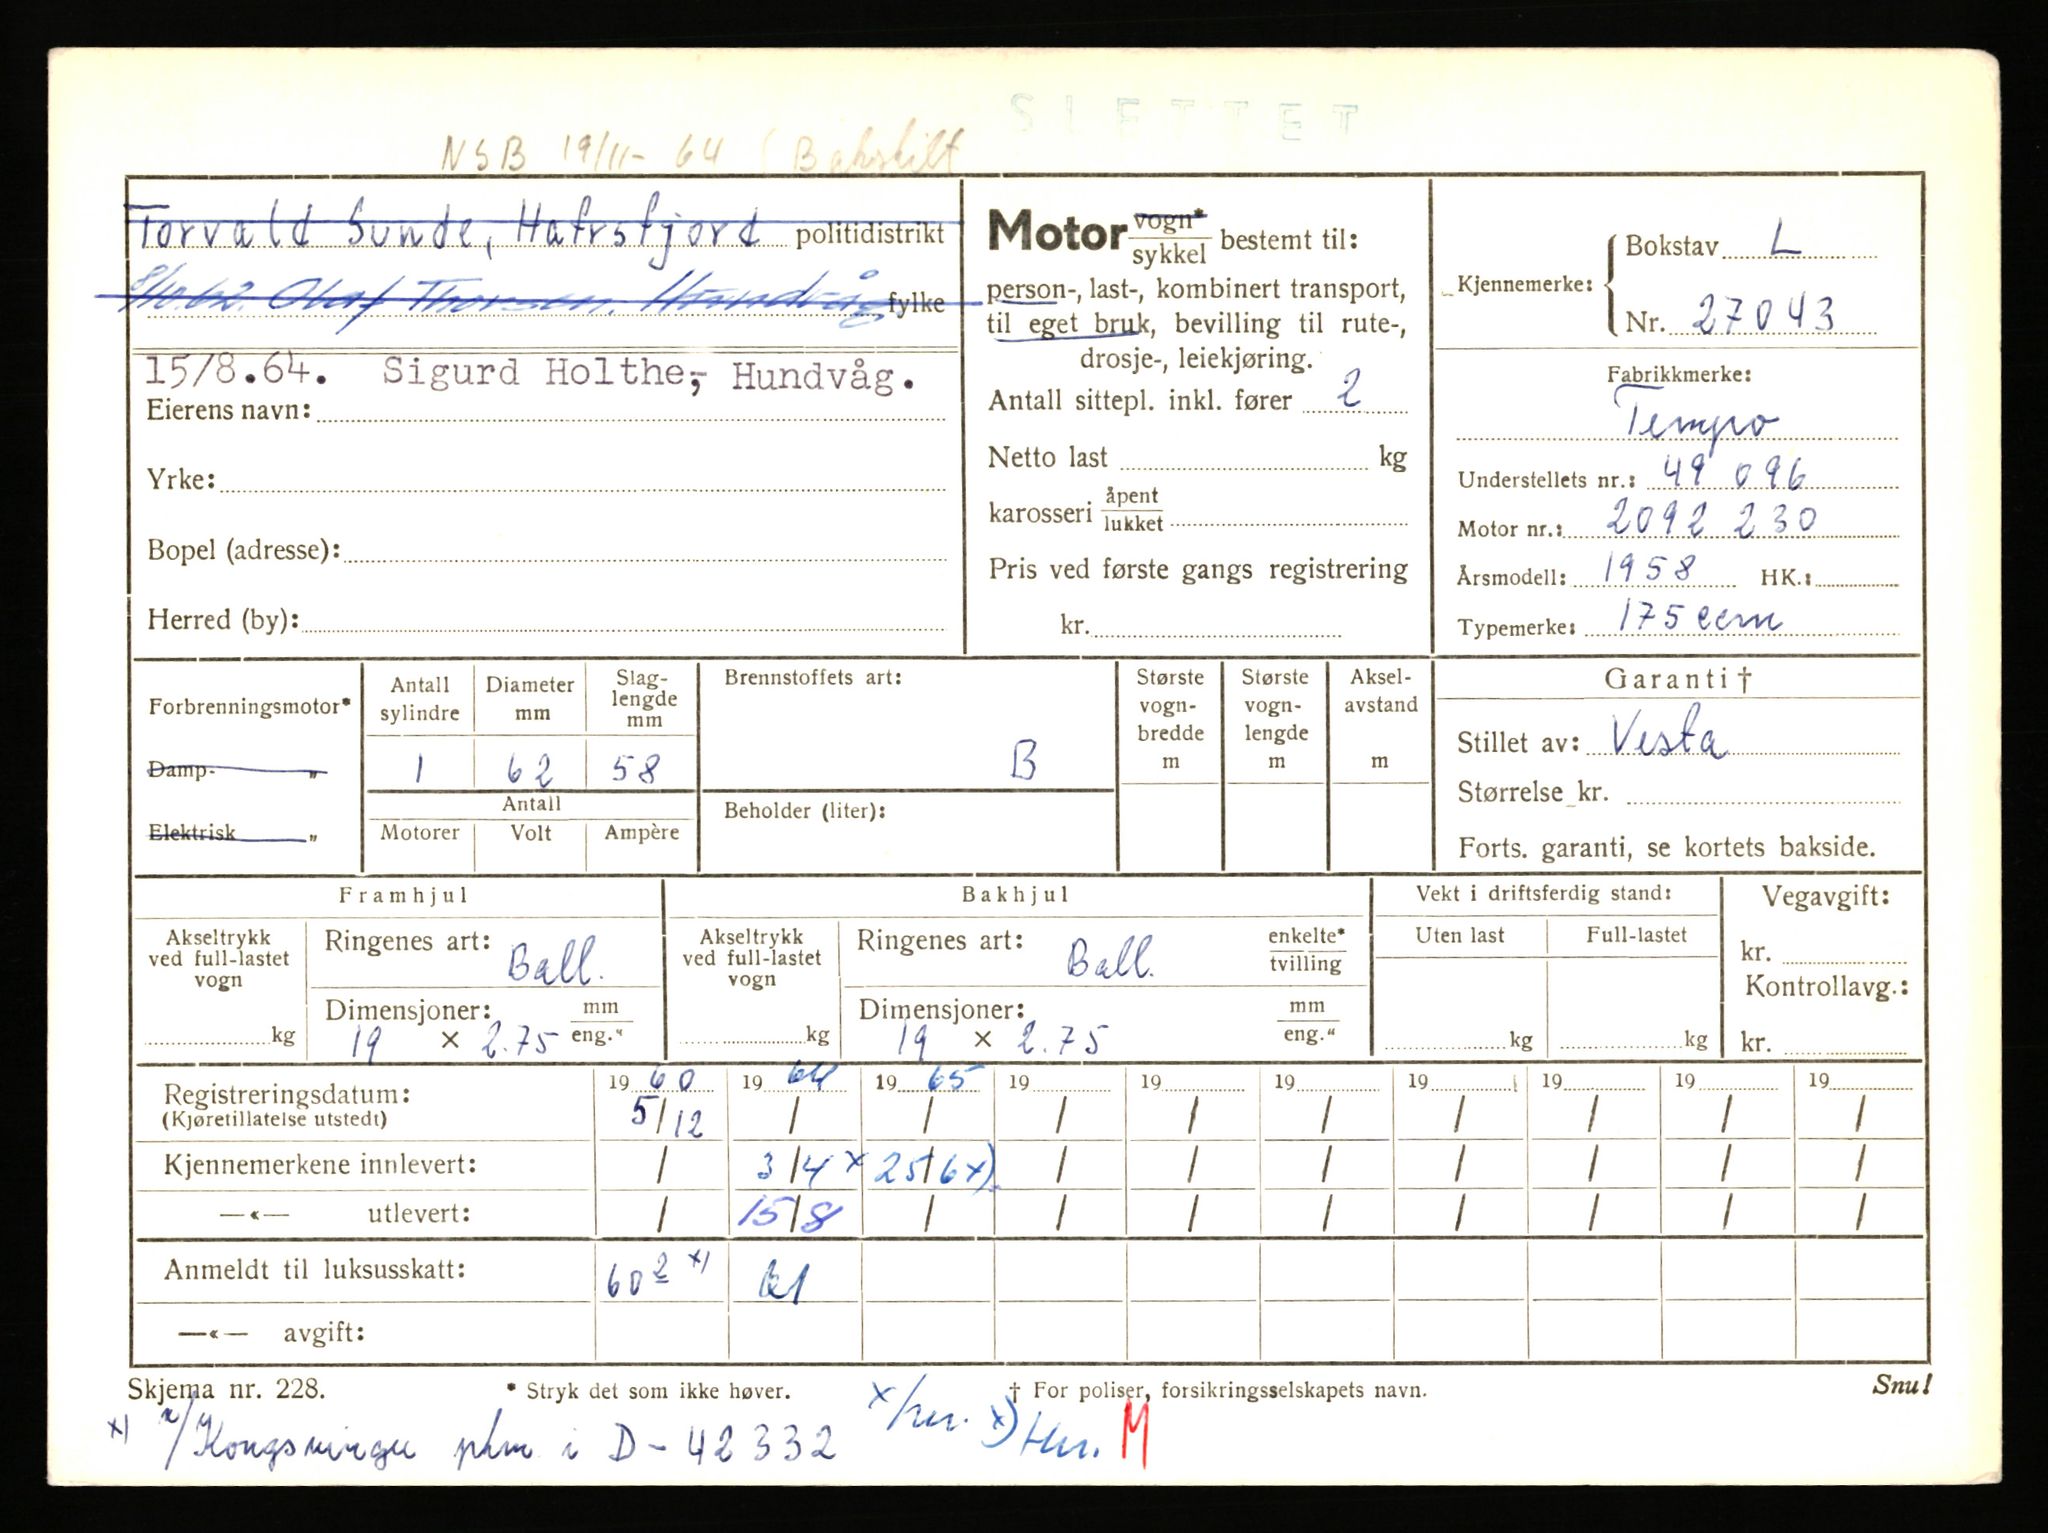 SLETTET
NSB 19/11- 64 (Bakskilt
Torvald Sunde, Hafrsfjord politidistrikt
8/10.62. Olaf Thorsen, Hundvåg fylke
15/8.64. Sigurd Holthe,- Hundvåg.
Eierens navn:
Yrke:
Bopel (adresse):
Herred (by):
Motor vogn* / sykkel bestemt til:
person-, last-, kombinert transport,
til eget bruk, bevilling til rute-,
drosje-, leiekjøring.
Antall sittepl. inkl. fører 2
Netto last kg
karosseri åpent / lukket
Pris ved første gangs registrering
kr.
Kjennemerke: Bokstav L
Nr. 27043
Fabrikkmerke:
Tempo
Understellets nr.: 49 096
Motor nr.: 2092 230
Årsmodell: 1958 HK.:
Typemerke: 175 ccm
Forbrenningsmotor*
Damp- „
Elektrisk „
Antall sylindre
Diameter mm
Slag-lengde mm
1 62 58
Antall
Motorer Volt Ampère
Brennstoffets art:
B
Beholder (liter):
Største vogn-bredde m
Største vogn-lengde m
Aksel-avstand m
Garanti †
Stillet av: Vesta
Størrelse kr.
Forts. garanti, se kortets bakside.
Framhjul
Akseltrykk ved full-lastet vogn
kg
Ringenes art: Ball.
Dimensjoner: mm / eng."
19 × 2.75
Bakhjul
Akseltrykk ved full-lastet vogn
kg
Ringenes art: Ball. enkelte* / tvilling
Dimensjoner: mm / eng."
19 × 2.75
Vekt i driftsferdig stand:
Uten last Full-lastet
kg kg
Vegavgift:
kr.
Kontrollavg.:
kr.
Registreringsdatum: 19 60 19 64 19 65 19 19 19 19 19 19 19
(Kjøretillatelse utstedt) 5/12 / / / / / / / / /
Kjennemerkene innlevert: / 3/4 x 25/6 x) / / / / / / /
—«— utlevert: / 15/8 / / / / / / / /
Anmeldt til luksusskatt: 60 2 x)
—«— avgift:
Skjema nr. 228. * Stryk det som ikke høver. † For poliser, forsikringsselskapets navn. Snu!
x) Kongsvinger phm i D-42332 x) M